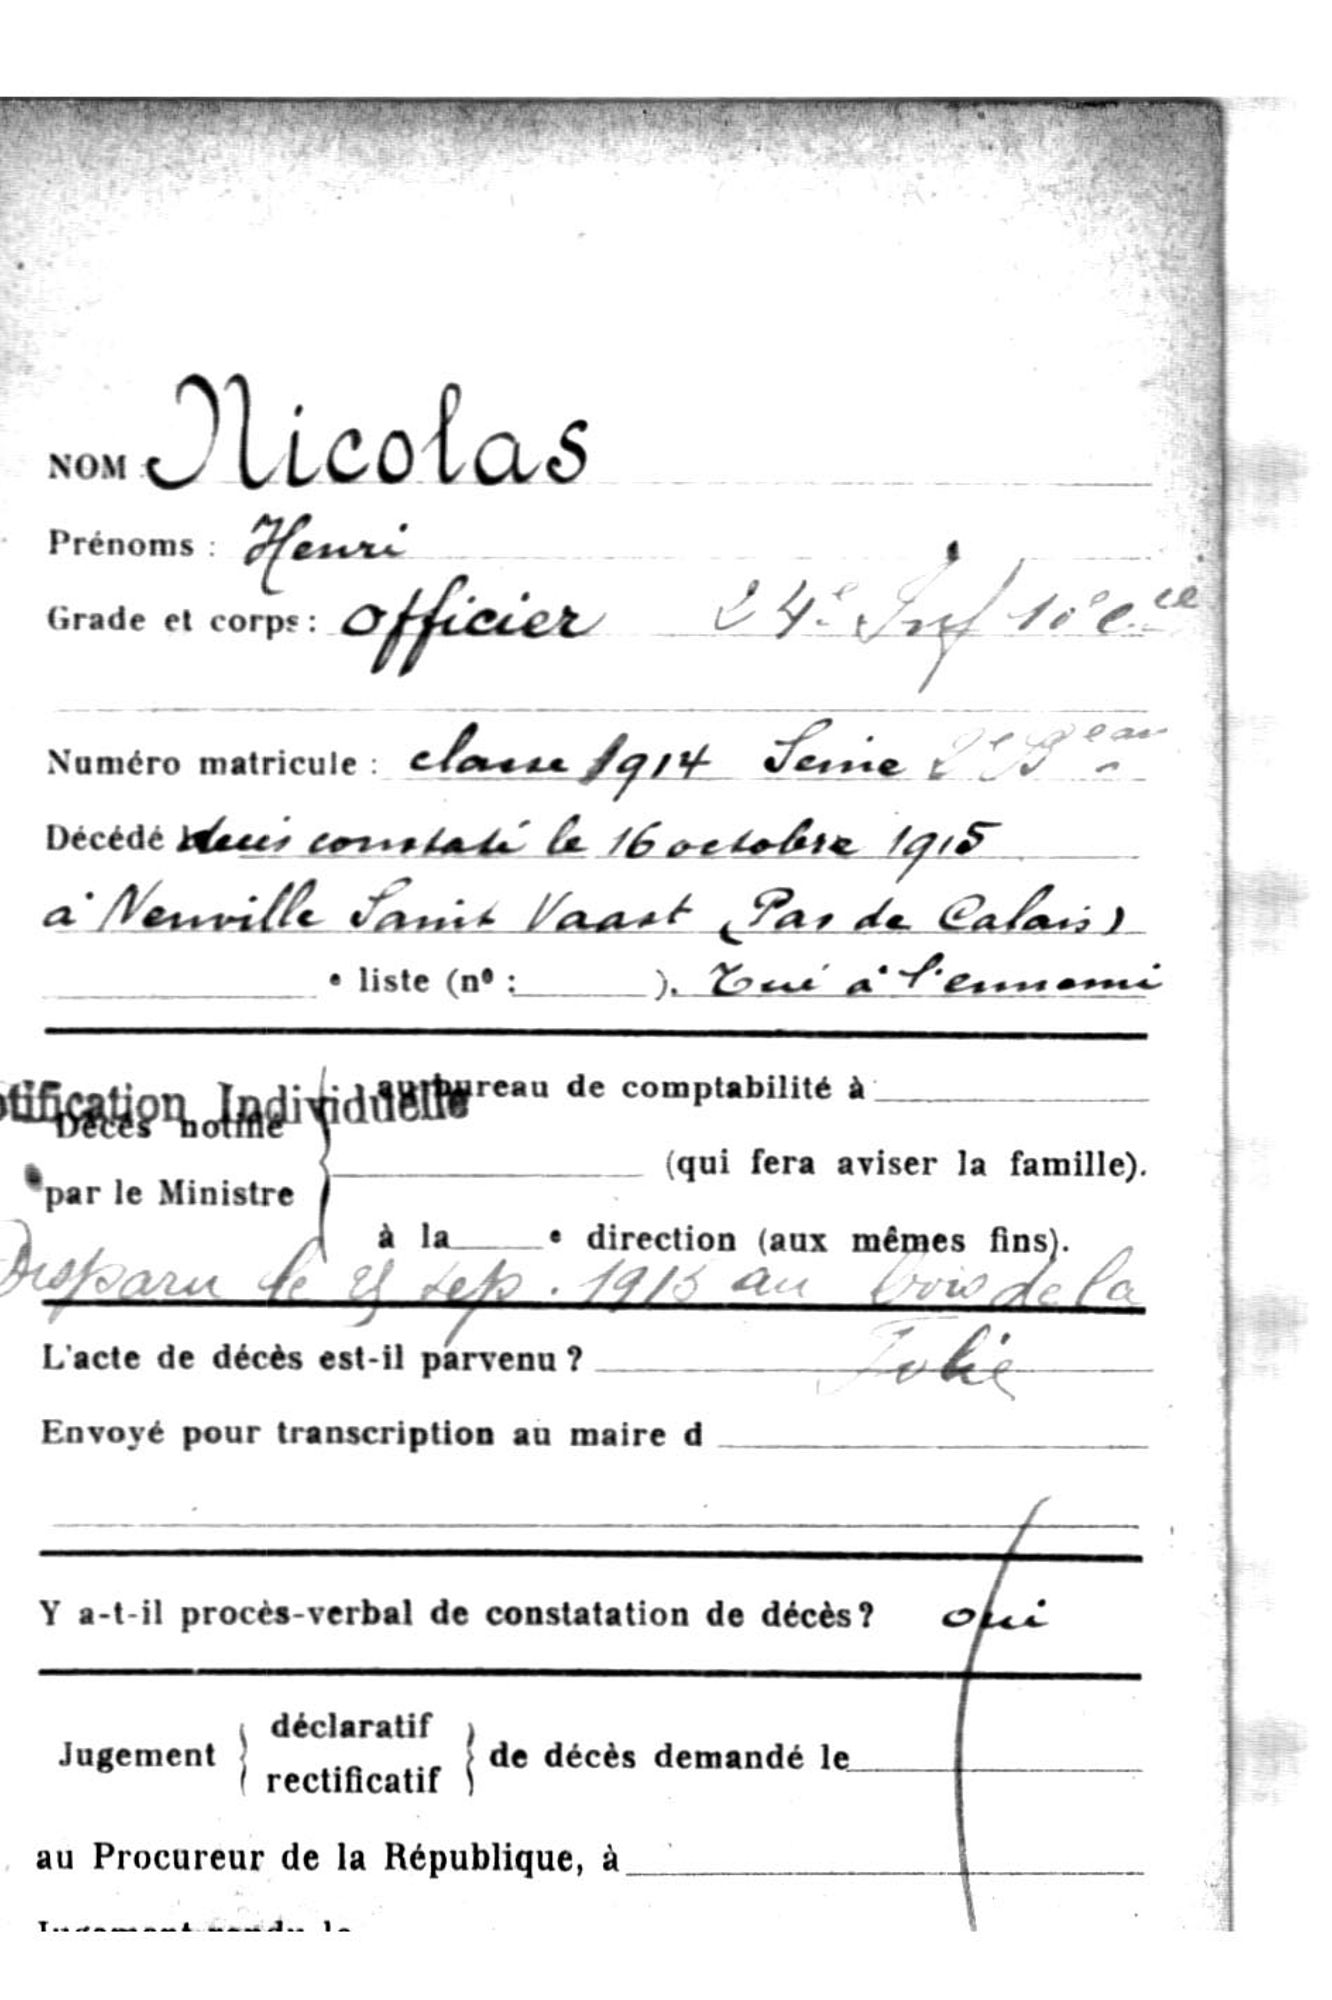 NOM Nicolas
Prénoms : Henri
Grade et corps : officier 24e Inf 10e Cie
Numéro matricule : classe 1914 Seine 2e Beau
Décédé décès constaté le 16 octobre 1915
à Neuville Saint Vaast (Pas de Calais)
e liste (nº : ). Tué à l'ennemi
otification Individuelle
au bureau de comptabilité à
Décès notifié
(qui fera aviser la famille).
par le Ministre
à la e direction (aux mêmes fins).
Disparu le 25 sep. 1915 au bois de la
Folie
L'acte de décès est-il parvenu ?
Envoyé pour transcription au maire d
Y a-t-il procès-verbal de constatation de décès ? oui
déclaratif
Jugement de décès demandé le
rectificatif
au Procureur de la République, à
Jugement rendu le